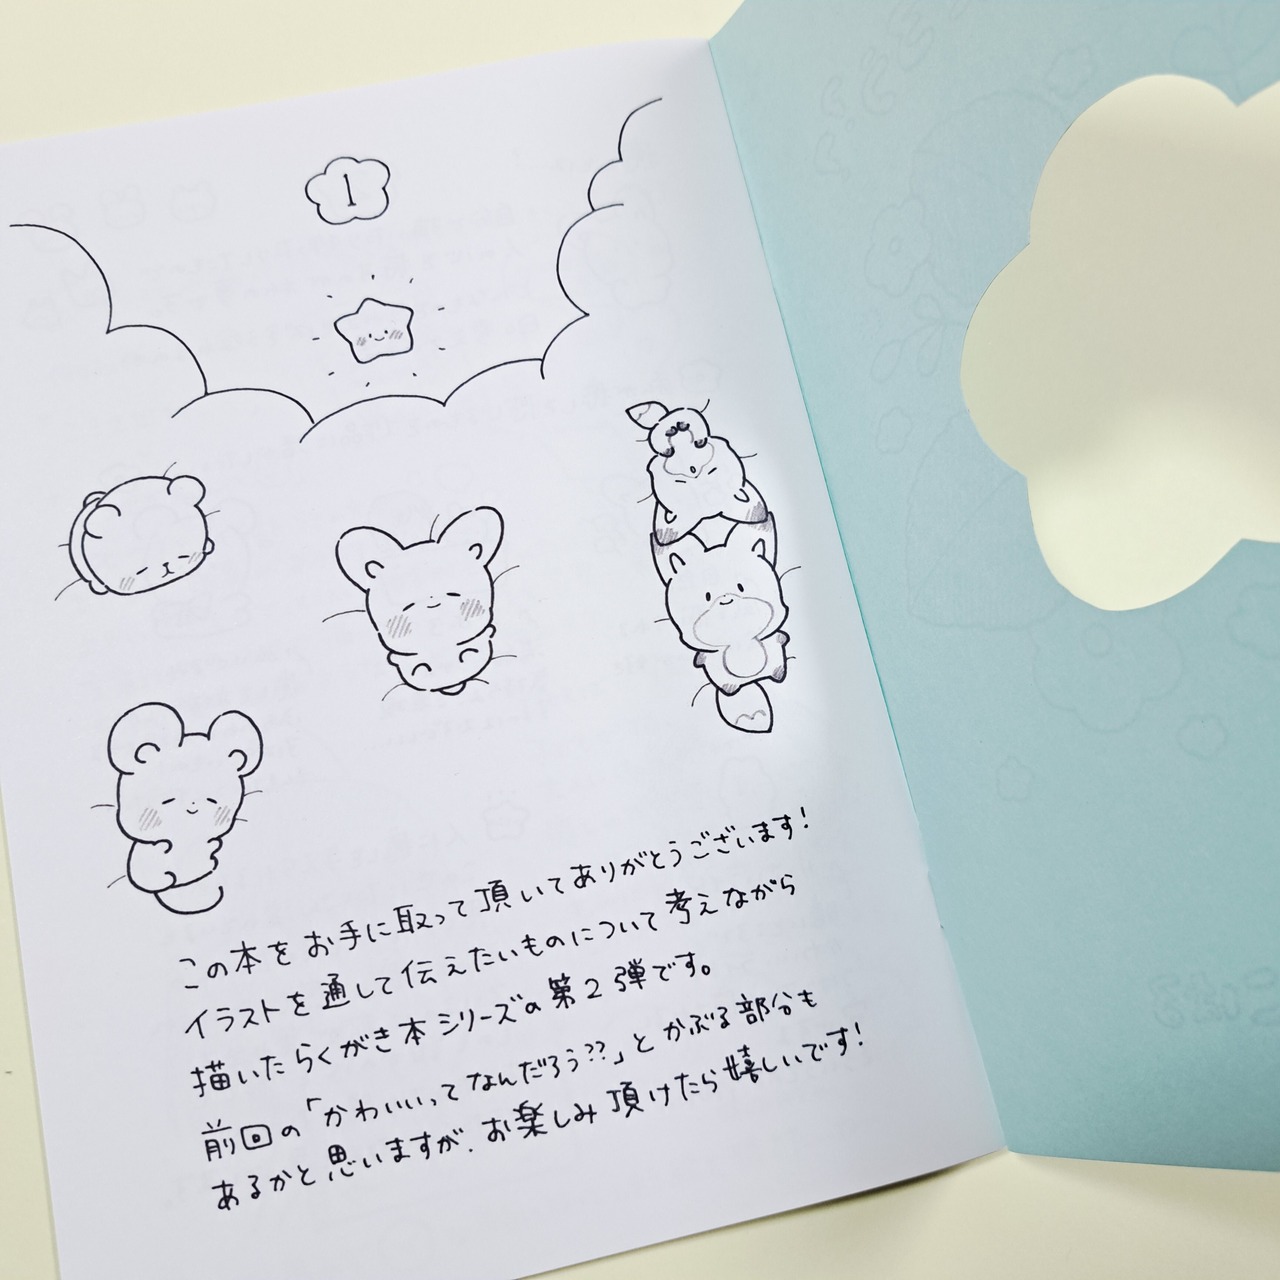 1
この本をお手に取って頂いてありがとうございます!
イラストを通して伝えたいものについて考えながら
描いたらくがき本シリーズの第2弾です。
前回の「かわいいってなんだろう??」とかぶる部分も
あるかと思いますが、お楽しみ頂けたら嬉しいです!